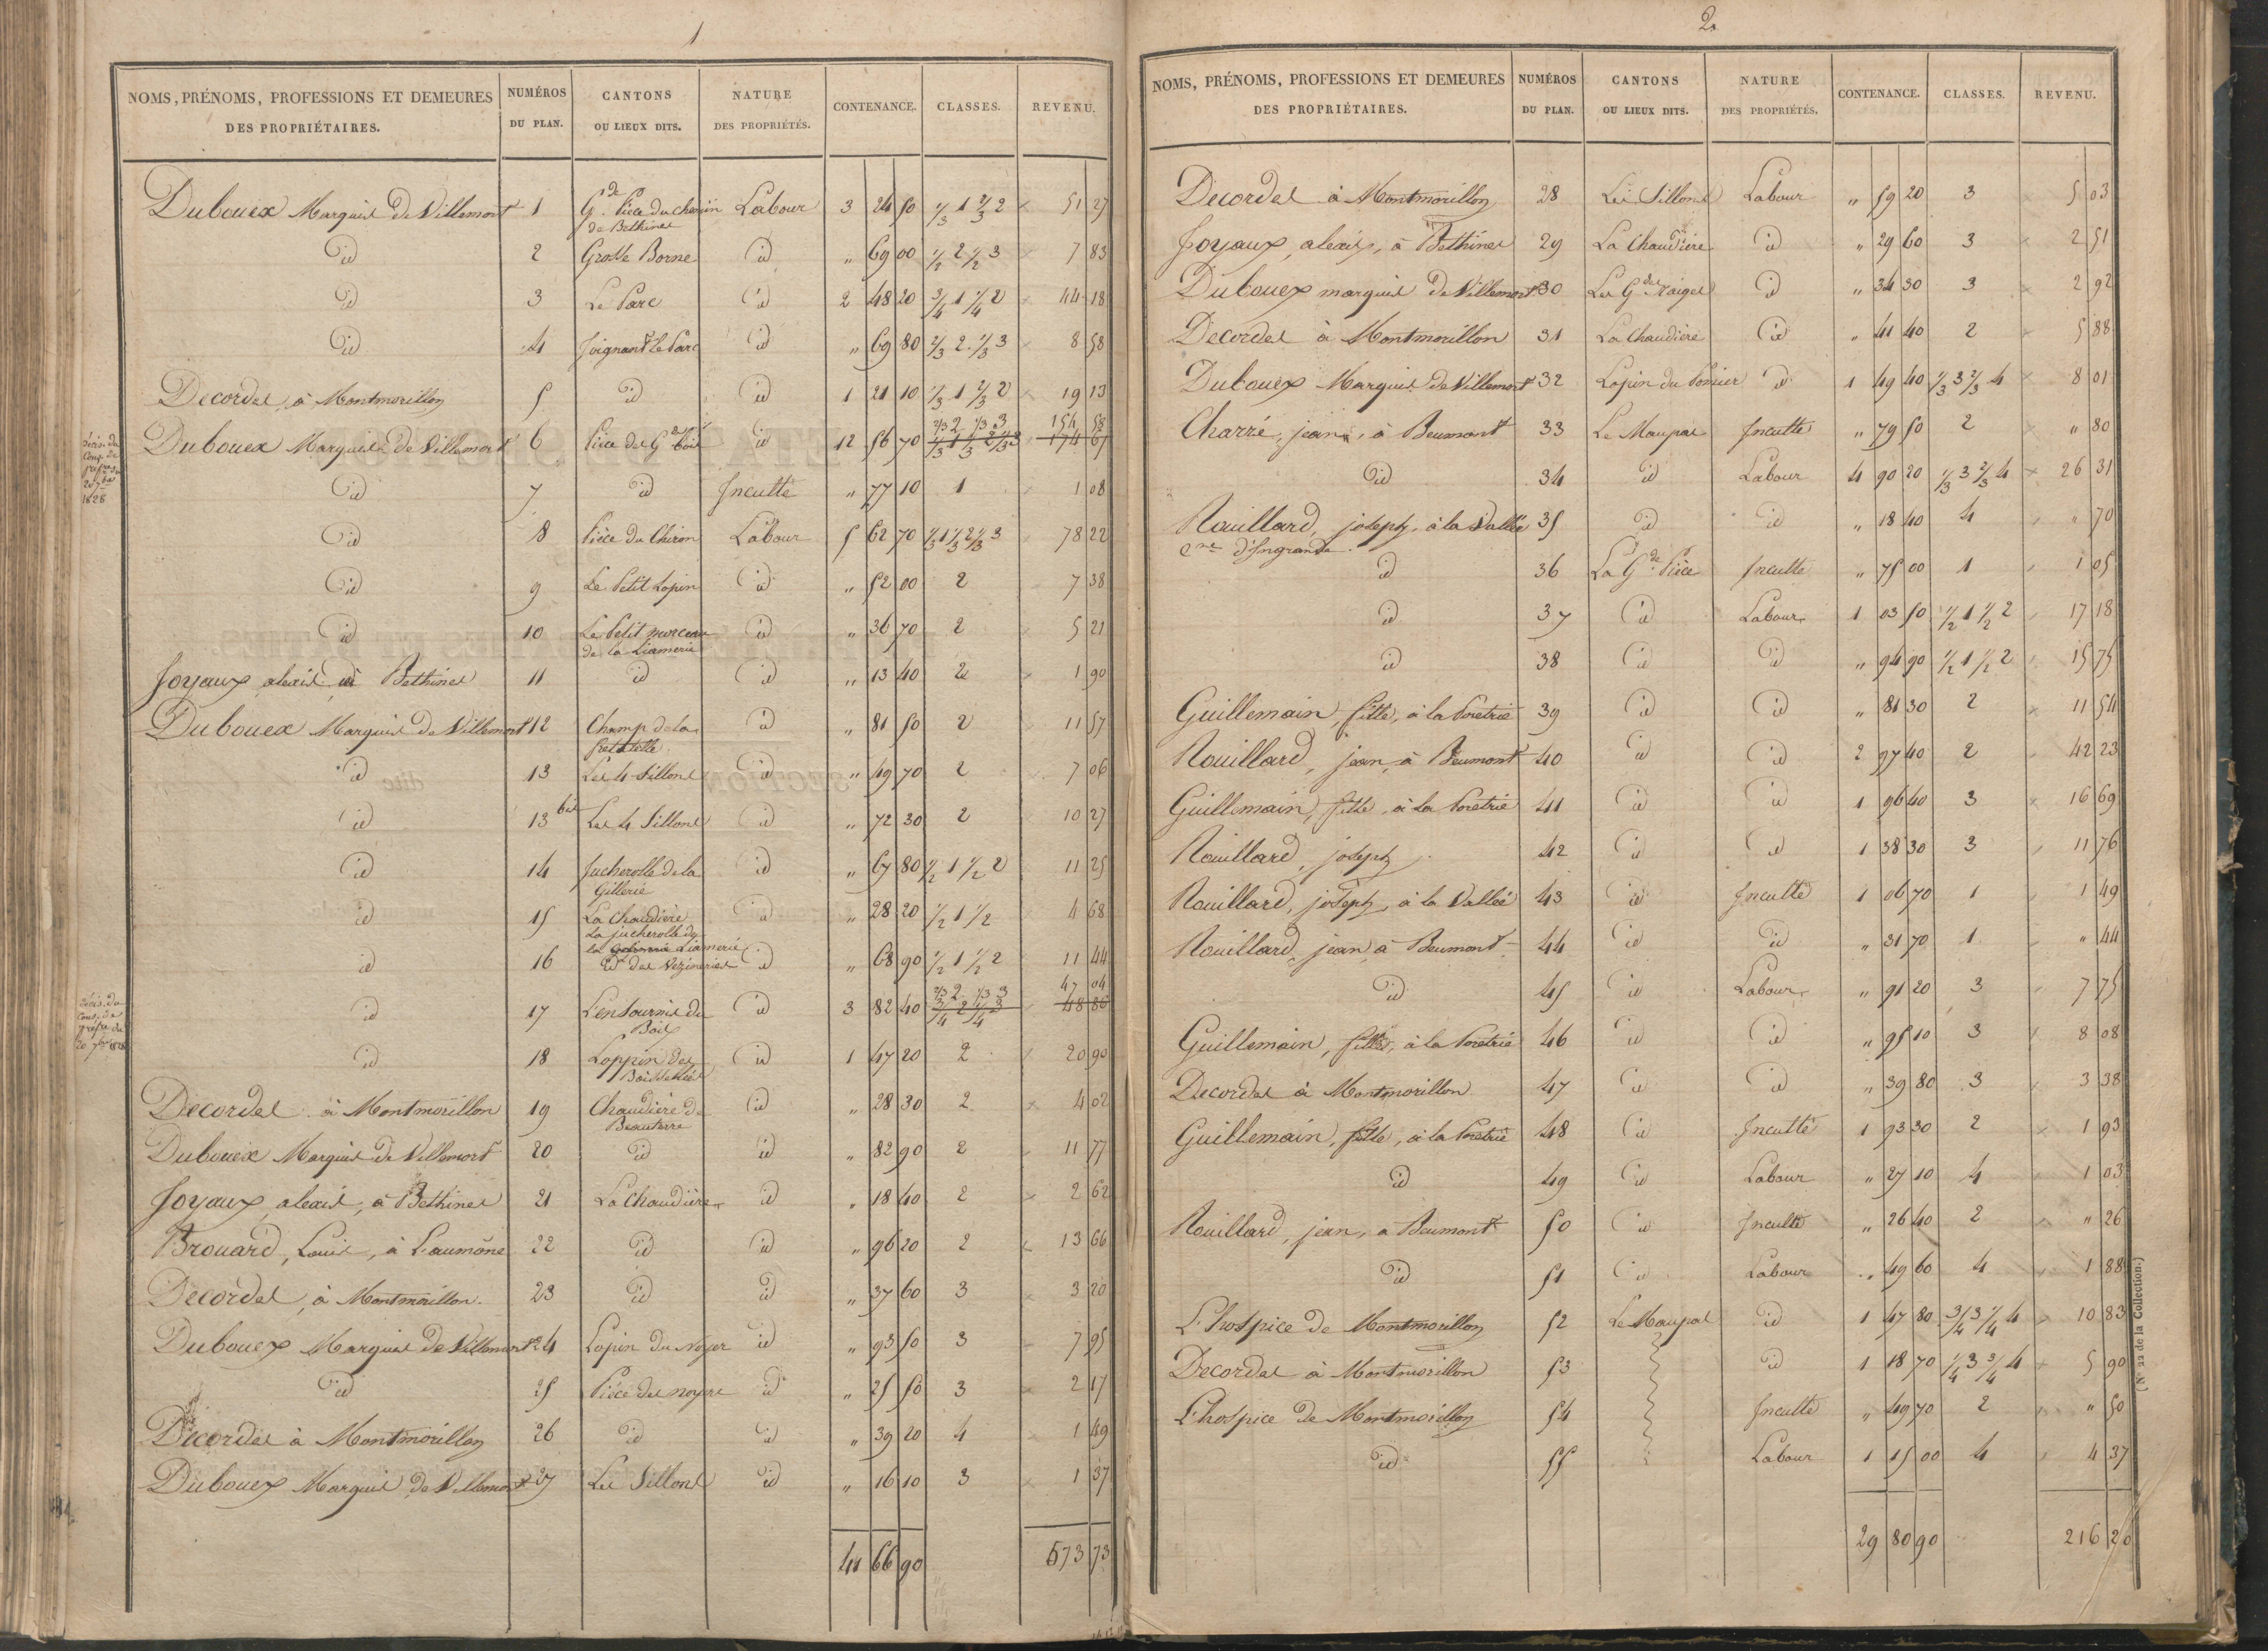 1
NOMS, PRÉNOMS, PROFESSIONS ET DEMEURES DES PROPRIÉTAIRES. NUMÉROS DU PLAN. CANTONS OU LIEUX DITS. NATURE DES PROPRIÉTÉS. CONTENANCE. CLASSES. REVENU.
Dubouex Marquis de Villemort 1 Gde Pièce du chemin de Bethines Labour 3 24 50 1/3 1 2/3 2 51 27
id 2 Grosse Borne id " 69 00 1/2 2 1/2 3 7 83
id 3 Le Parc id 2 48 20 3/4 1 1/4 2 44 18
id 4 Joignant le Parc id " 69 80 2/3 2 1/3 3 8 58
Decordes, à Montmorillon 5 id id 1 21 10 1/3 1 2/3 2 19 13
Dubouex Marquis de Villemort 6 Pièce des Gds bois id 12 56 70 2/3 2 1/3 3 154 58
1/3 1 1/3 2 1/3 3 174 67
20 7bre 1828
id 7 id Inculte " 77 10 1 1 08
id 8 Pièce du Chiron Labour 5 62 70 1/3 1 1/3 2 1/3 3 78 22
id 9 Le Petit Lopin id " 52 00 2 7 38
id 10 Le Petit morceau de la Liamerie id " 36 70 2 5 21
Joyaux alexis à Bethines 11 id id " 13 40 2 1 90
Dubouex Marquis de Villemort 12 Champ de la id " 81 50 2 11 57
id 13 Les 4 Sillons id " 49 70 2 7 06
id 13 bis Les 4 Sillons id " 72 30 2 10 27
id 14 Jucherolle de la Gillerie id " 67 80 1/2 1 1/2 2 11 25
id 15 La Chaudière id " 28 20 1/2 1 1/2 4 68
id 16 La jucherolle de la Liamerie des Vezineries id " 68 90 1/2 1 1/2 2 11 44
id 17 L'entournis du Bois id 3 82 40 2/3 2 1/3 3 47 04
3/4 2 1/4 3 48 86
20 7bre 1828
id 18 Loppin des id 1 47 20 2 20 90
Decordes à Montmorillon 19 Chaudière de Beauterre id " 28 30 2 4 02
Dubouex Marquis de Villemort 20 id id " 82 90 2 11 77
Joyaux, alexis, à Bethines 21 La Chaudière id " 18 40 2 2 62
Brouard, Louis, à L'aumône 22 id id " 96 20 2 13 66
Decordes, à Montmorillon 23 id id " 37 60 3 3 20
Dubouex Marquis de Villemort 24 Lopin du Noyer id " 93 50 3 7 95
id 25 Pièce des noyers id " 25 50 3 2 17
Decordes à Montmorillon 26 id id " 39 20 4 1 49
Dubouex Marquis de Villemort 27 Les Sillons id " 16 10 3 1 37
41 66 90 573 73
2
NOMS, PRÉNOMS, PROFESSIONS ET DEMEURES DES PROPRIÉTAIRES. NUMÉROS DU PLAN. CANTONS OU LIEUX DITS. NATURE DES PROPRIÉTÉS. CONTENANCE. CLASSES. REVENU.
Decordes à Montmorillon 28 Les Sillons Labour " 59 20 3 5 03
Joyaux, alexis, à Bethines 29 La Chaudière id " 29 60 3 2 51
Dubouex marquis de Villemort 30 Les Gdes Raiges id " 34 30 3 2 92
Decordes à Montmorillon 31 La Chaudière id " 41 40 2 5 88
Dubouex Marquis de Villemort 32 Lopin du Pomier id 1 49 40 1/3 3 2/3 4 8 01
Charré, jean, à Beumont 33 Le Maupas Inculte " 79 50 2 " 80
id 34 id Labour 4 90 20 1/3 3 2/3 4 26 31
Rouillard, joseph, à la Vallée 35 id id " 18 40 4 " 70
Cne d'Ingrande.
id 36 La Gde Pièce Inculte " 75 00 1 1 05
id 37 id Labour 1 03 50 1/2 1 1/2 2 17 18
id 38 id id " 94 90 1/2 1 1/2 2 15 75
Guillemain, fille, à la Poretrie 39 id id " 81 30 2 11 54
Rouillard, jean, à Beumont 40 id id 2 97 40 2 42 23
Guillemain, fille, à la Poretrie 41 id id 1 96 40 3 16 69
Rouillard, joseph 42 id id 1 38 30 3 11 76
Rouillard, joseph, à la Vallée 43 id Inculte 1 06 70 1 1 49
Rouillard, jean à Beumont 44 id id " 31 70 1 " 44
id 45 id Labour " 91 20 3 7 75
Guillemain, fille, à la Poretrie 46 id id " 95 10 3 8 08
Decordes à Montmorillon 47 id id " 39 80 3 3 38
Guillemain, fille, à la Poretrie 48 id Inculte 1 93 30 2 1 93
id 49 id Labour " 27 10 4 1 03
Rouillard, jean, à Beumont 50 id Inculte " 26 40 2 " 26
id 51 id Labour " 49 60 4 1 88
L'hospice de Montmorillon 52 Le Maupas id 1 47 80 3/4 3 1/4 4 10 83
Decordes à Montmorillon 53 id 1 18 70 1/4 3 3/4 4 5 90
L'hospice de Montmorillon 54 Inculte " 49 70 2 " 50
id 55 Labour 1 15 00 4 4 37
29 80 90 216 20
(N° 22 de la Collection.)